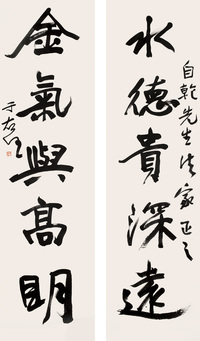 自乾先生法家正之
水德貴深遠
金氣與高明
于右任